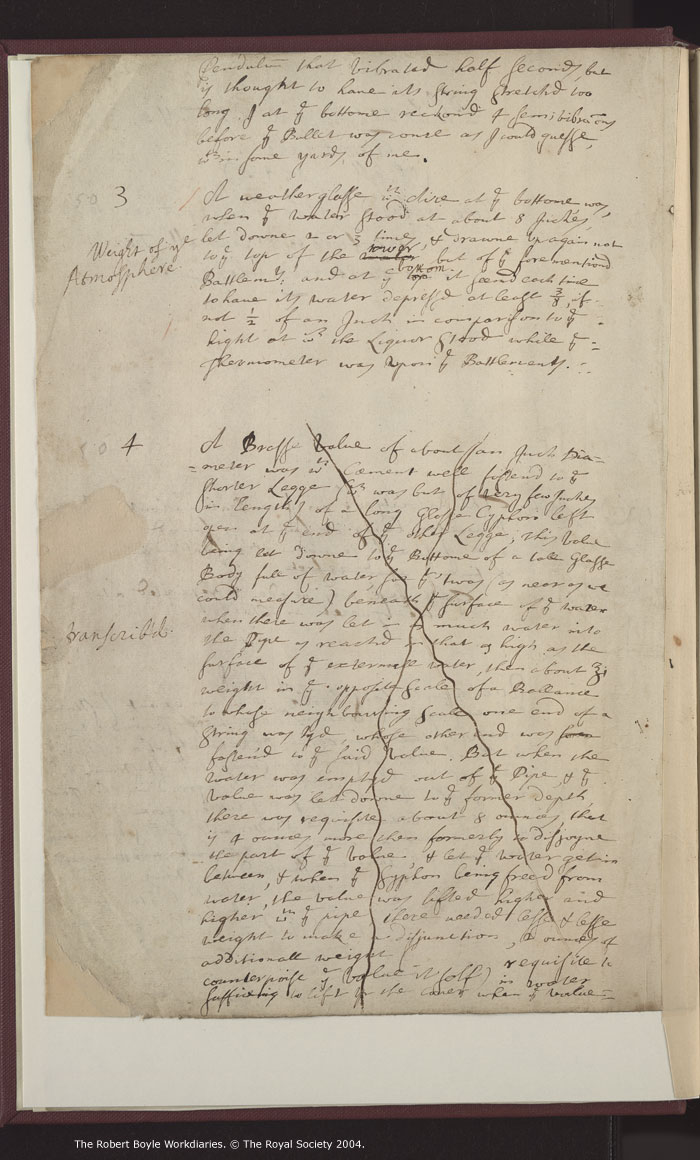 Pendulum that vibrated half seconds, but
is thought to have its string stretch'd too
long. I at ye bottome reckon'd 4 semivibrations
before ye Bullet was come as I could guesse,
wthin some yards of me.
3
A weatherglasse wch dive at ye bottome was,
when ye water stood at about 8 Inches,
let downe 2 or 3 times, & drawne up again not
to ye top of the water tower but of ye forementiond
Battlemts: and at ye top bottom it seemd each time
to have its water depressd at least 3/8 if
not 1/2 of an Inch in comparison to ye
hight at wch the Liquor stood while ye
Thermometer was upon ye Battlements.
Weight of ye
Atmosphere
4
A Brasse Valve of about an Inch Dia=
=meter was wth Cement well fastend to ye
shorter Legge (wch was but of very few Inches
in length) of a long Glasse Cyphon left
open at ye end of ye other Legge; this Valve
being let downe to ye Bottome of a tall Glasse
Body full of water, for ye 'twas (as near as we
could measure) beneath ye surface of ye water
when there was let in so much water into
the Pipe as reacht in that as high as the
surface of ye externall water, then about ℥
weight in ye opposite scale of a Ballance
to whose neighbouring scale one end of a
string was tyd, whose other end was
fastend to ye said valve. But when the
water was emptyd out of ye Pipe & ye
valve was let downe to ye former depth,
there was requisite about 8 ounces, that
is 4 ounces more then formerly to disjoyne
the part of ye valve, & let ye water get in
between, & when ye Syphon being freed from
water, the valve was lifted higher and
higher wth ye pipe there needed lesse & lesse
weight to make a disjunction, 2 ounces of
additionall weight ( requisite to
counterpoise ye valve it self) in water
sufficing to lift up the cover when ye valve=
transcrib'd.
The Robert Boyle Workdiaries. © The Royal Society 2004.